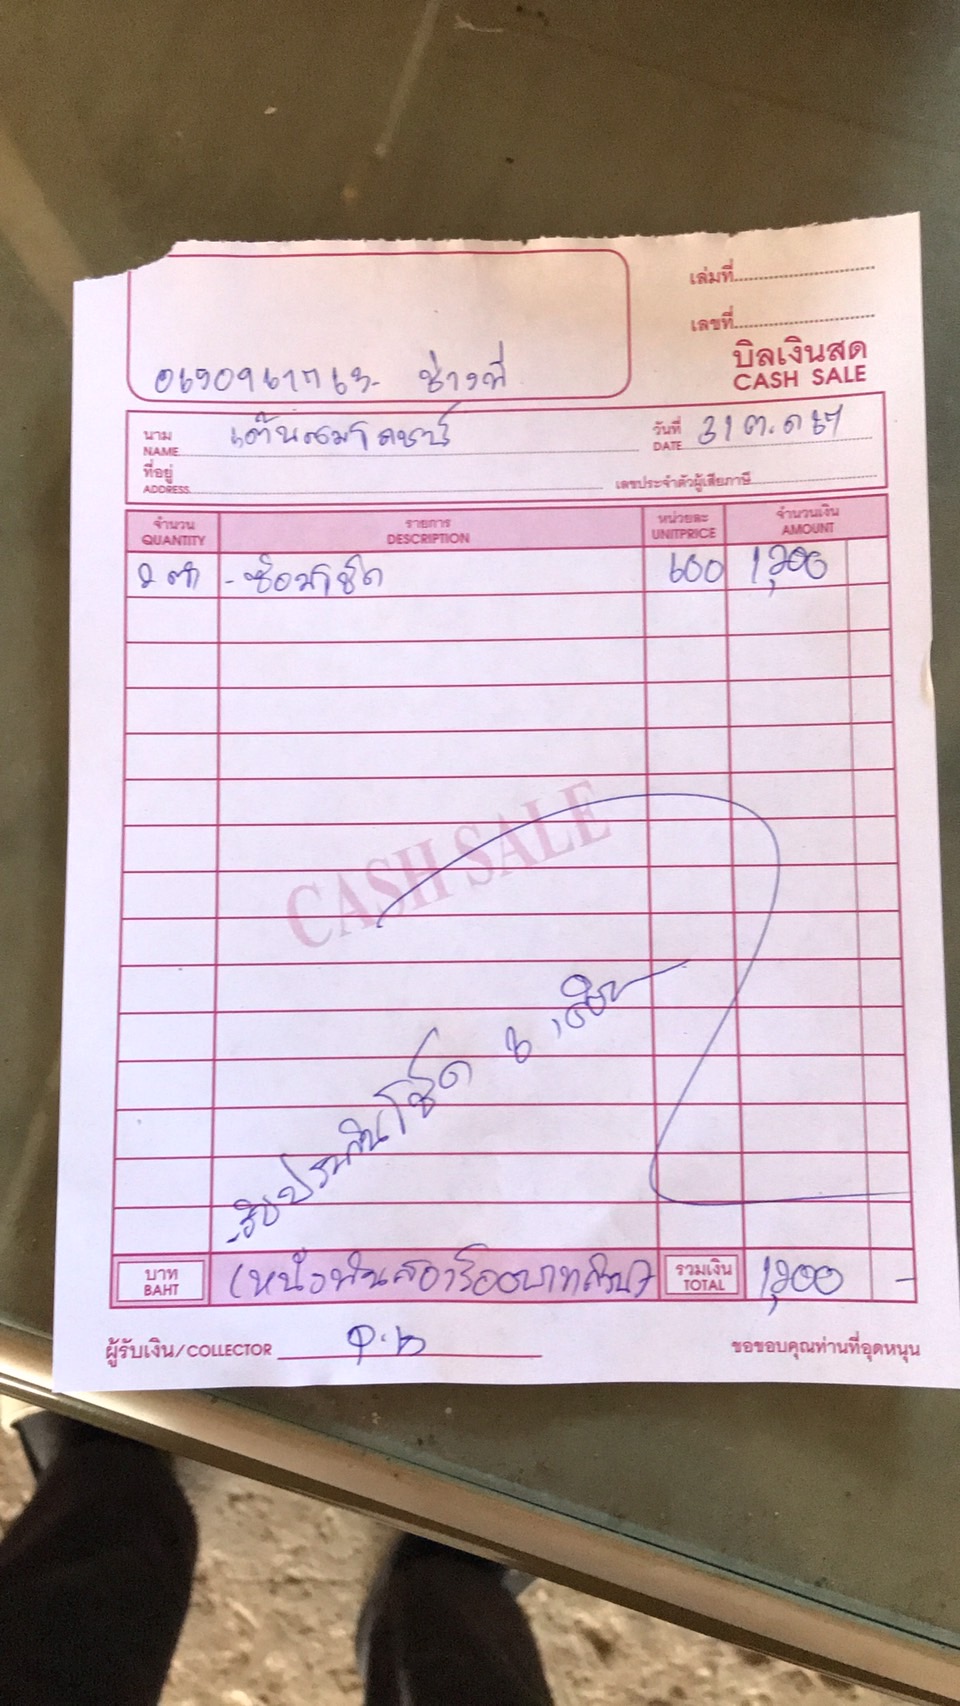 เล่มที่
เลขที่
บิลเงินสด
CASH SALE
ช่างที่
นาม
NAME
วันที่
DATE
31 ต.ค 67
ที่อยู่
ADDRESS
เลขประจำตัวผู้เสียภาษี
จำนวน รายการ หน่วยละ จำนวนเงิน
QUANTITY DESCRIPTION UNITPRICE AMOUNT
2 ตัว - ซ่อมโช๊ค 600 1,200
CASH SALE
- รับประกันโช๊ค 6 เดือน
บาท
BAHT
(หนึ่งพันสองร้อยบาทถ้วน)
รวมเงิน
TOTAL
1,200 -
ผู้รับเงิน/COLLECTOR
ขอขอบคุณท่านที่อุดหนุน